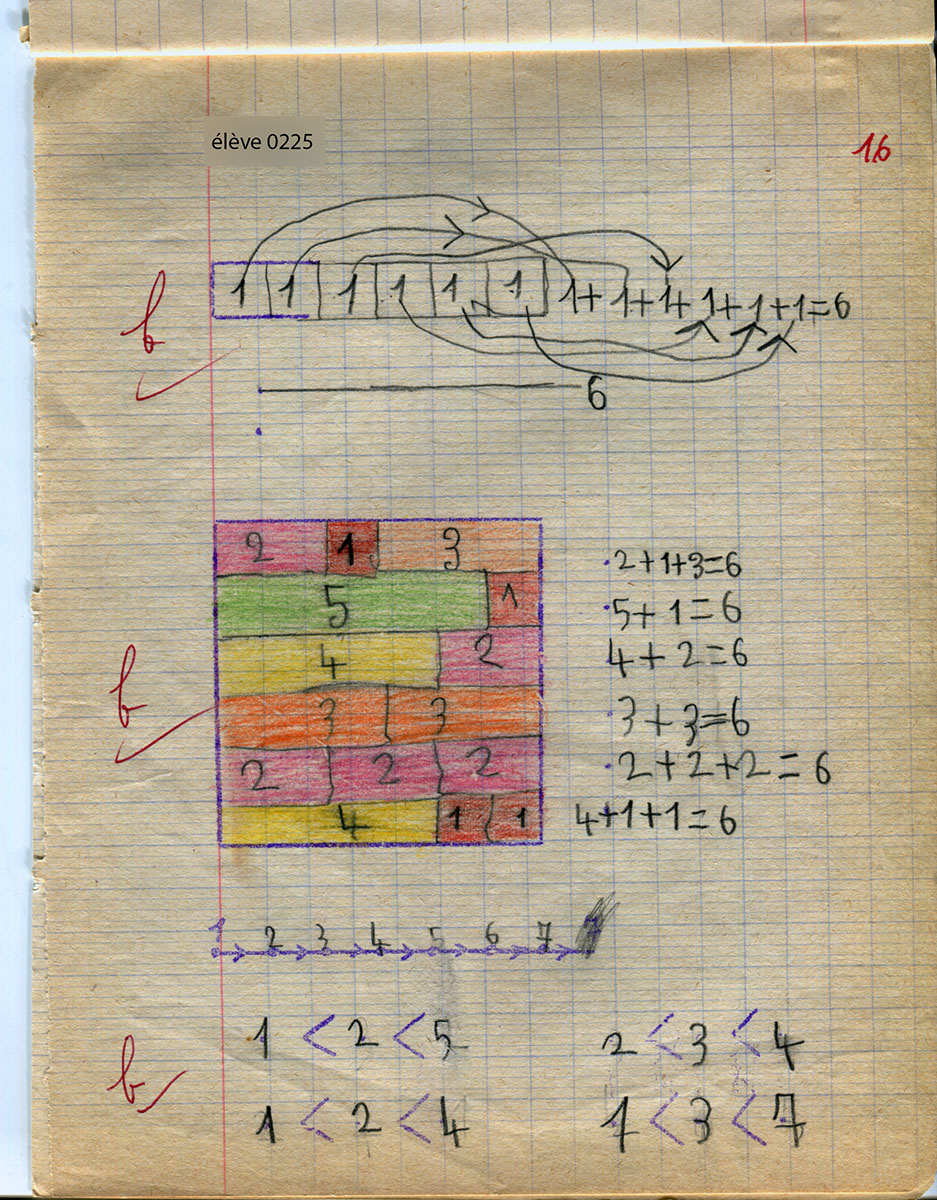 élève 0225
16
1 1 1 1 1 1 1+1+1+1+1+1=6
b
6
2 1 3 2+1+3=6
5 1 5+1=6
4 2 4+2=6
b
3 3 3+3=6
2 2 2 2+2+2=6
4 1 1 4+1+1=6
1 2 3 4 5 6 7
1 < 2 < 5 2 < 3 < 4
b
1 < 2 < 4 1 < 3 < 7